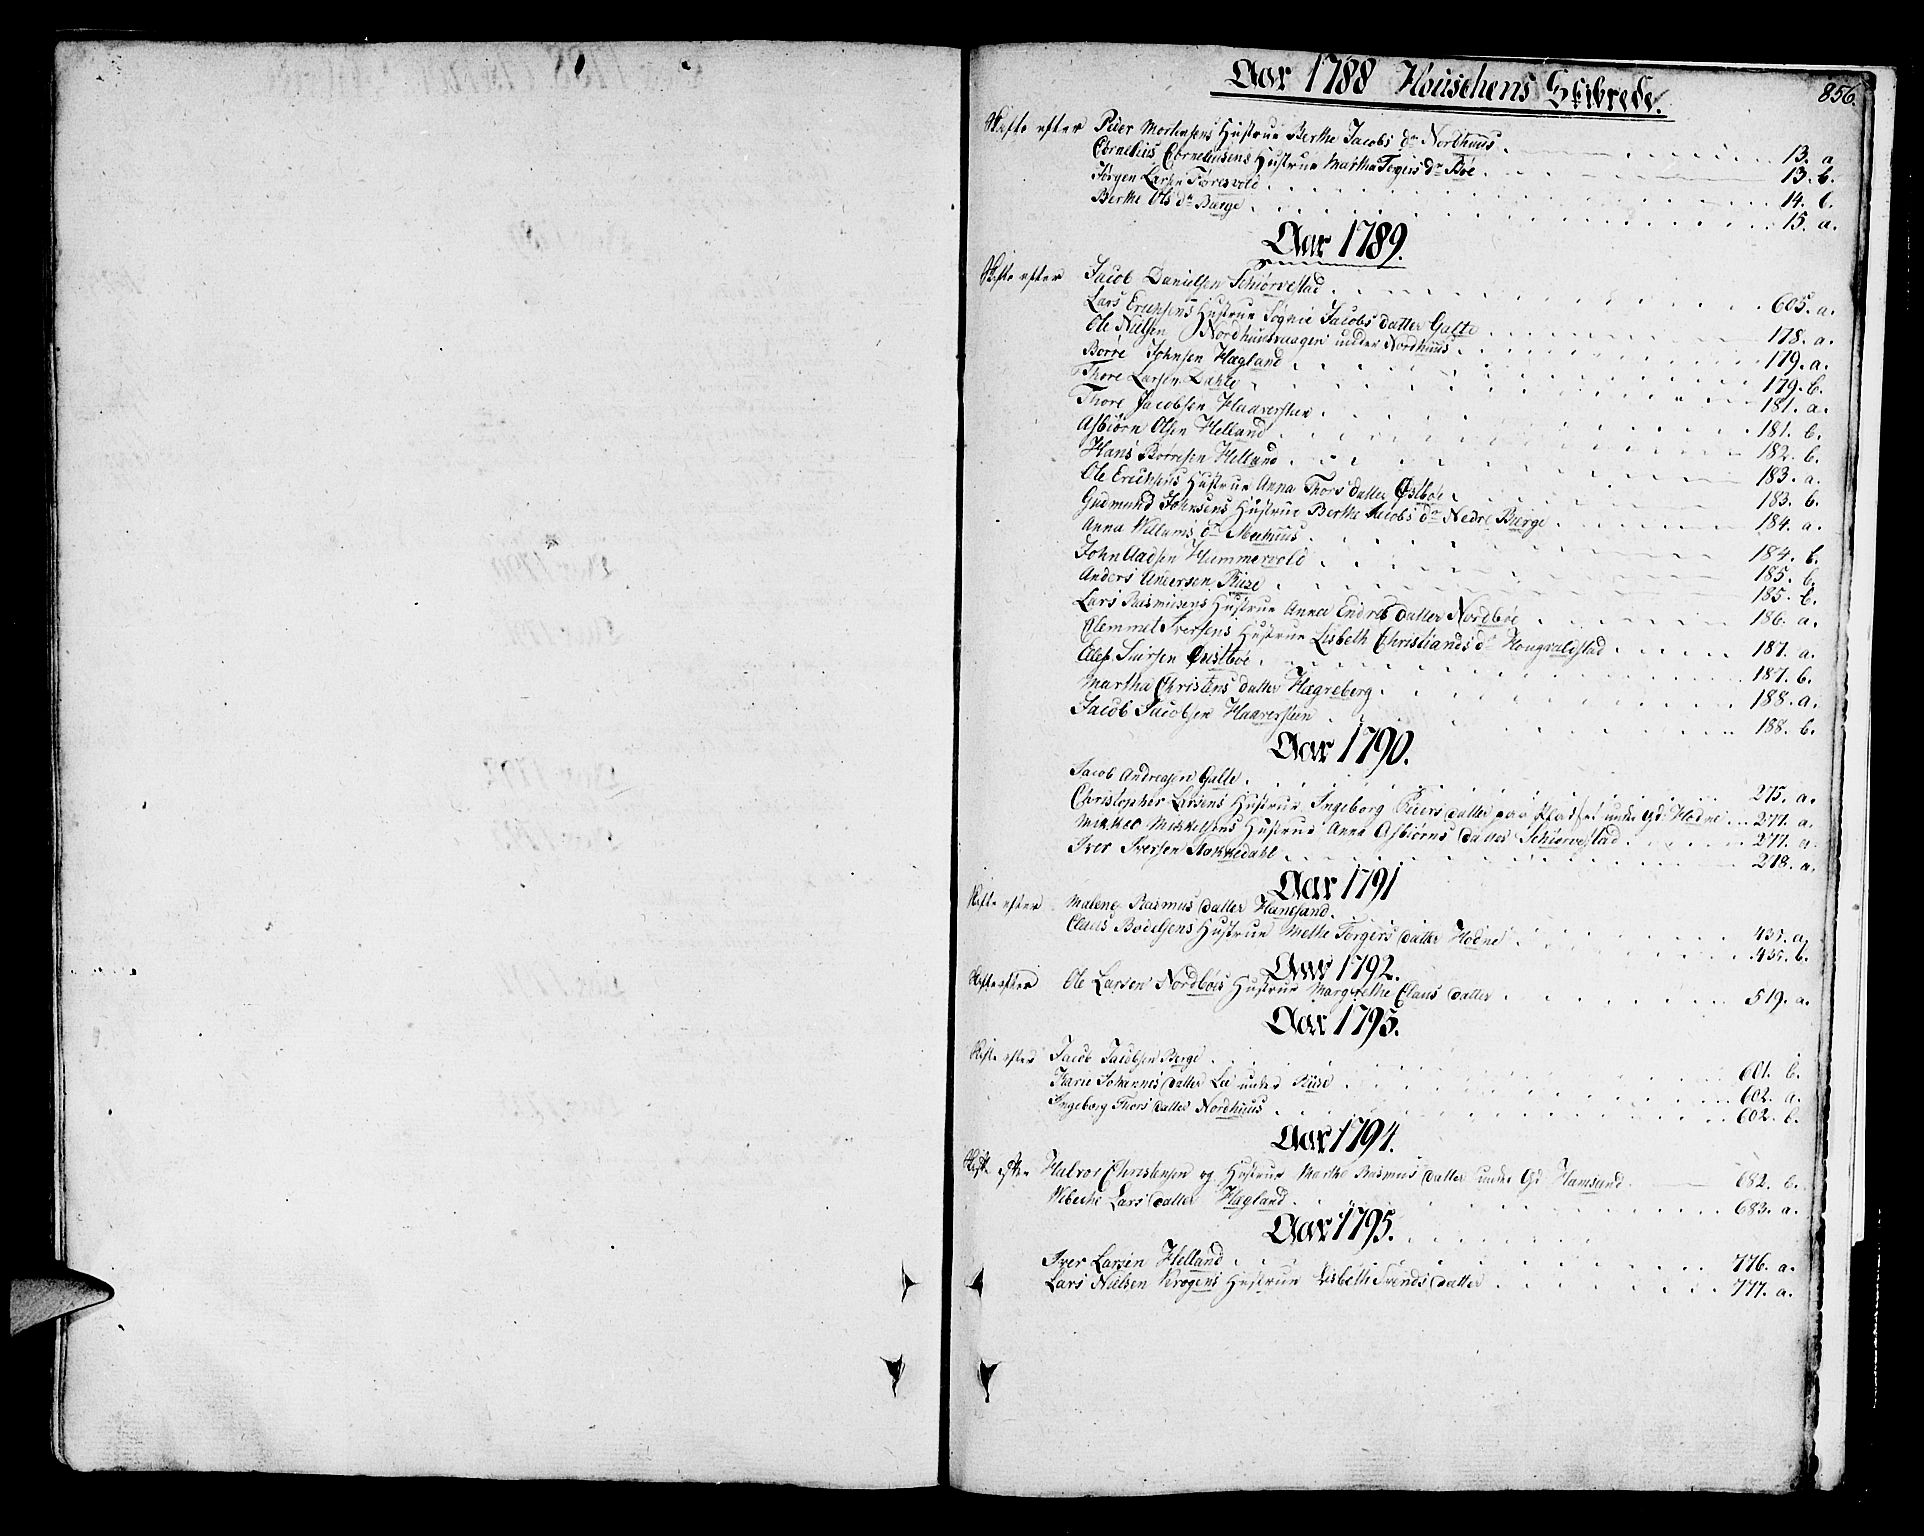 856.
Aar 1788 Houschens Skibrede.
Skifte efter Peder Mortensens Hustrue Berthe Jacobs dr Nordhuus . . . 13. a
Cornelius Corneliusens Hustrue Martha Tegers dr Bøe . . . 13. b.
Jørgen Larsen Føresvold . . . 14. b.
Berthe Ols dr Barge . . . 15. a.
Aar 1789.
Skifte efter Jacob Danielsen Schiørvestad . . . 605. a.
Lars Erichsens Hustrue Sognie Jacobs datter Galte . . . 178. a.
Ole Nielsen Nordhuusvaagen under Nordhuus . . . 179. a.
Borre Johnsen Hægland . . . 179. b.
Thore Larsen Dahle . . . 181. a.
Thore Jacobsen Haaversteen . . . 181. b.
Asbiørn Olsen Helland . . . 182. b.
Hans Borresen Helland . . . 183. a.
Ole Erichsens Hustrue Anna Thors datter Østbøe . . . 183. b.
Gudmund Johnsens Hustrue Berthe Jacobs dr Nedre Barge . . . 184. a.
Anna Willums dr Meehuus . . . 184. b.
John Aadsen Hummervold . . . 185. b.
Anders Andersen Riise . . . 185. b.
Lars Rasmusens Hustrue Anna Endres datter Nordbøe . . . 186. a.
Clemmet Iversens Hustrue Lisbeth Christians dr Hougvaldstad . . . 187. a.
Østbøe . . . 187. b.
Martha Christens datter Hægreberg . . . 188. a.
Jacob Jacobsen Haaversteen . . . 188. b.
Aar 1790.
Jacob Andreasen Galte . . . 275. a.
Christopher Larsens Hustrue Ingeborg Peers datter paa Pladset under Gd: Hodne . . . 277. a.
Mikkel Mikkelsens Hustrue Anna Asbiørns datter Schiørvestad . . . 277. a.
Iver Iversen Stokkedahl . . . 278. a.
Aar 1791
Skifte efter Malene Rasmus datter Hanesand . . . 437. a.
Claus Bodelsens Hustrue Methe Torgers datter Hodne . . . 437. b.
Aar 1792.
Skifte efter Ole Larsen Nordbøes Hustrue Margrethe Claus datter . . . 519. a.
Aar 1793.
Skifte efter Jacob Jacobsen Berge . . . 601. b.
Karie Johannes datter Lie under Riise . . . 602. a.
Ingeborg Thors datter Nordhuus . . . 602. b.
Aar 1794.
Skifte efter Halvor Christensen og Hustrue Marthe Rasmus datter under Gd Hanesand . . . 682. b.
Wibeche Lars datter Hægland . . . 683. a.
Aar 1795.
Iver Larsen Helland . . . 776. a.
Lars Nielsen Krogens Hustrue Lisbeth Svends datter . . . 777. a.